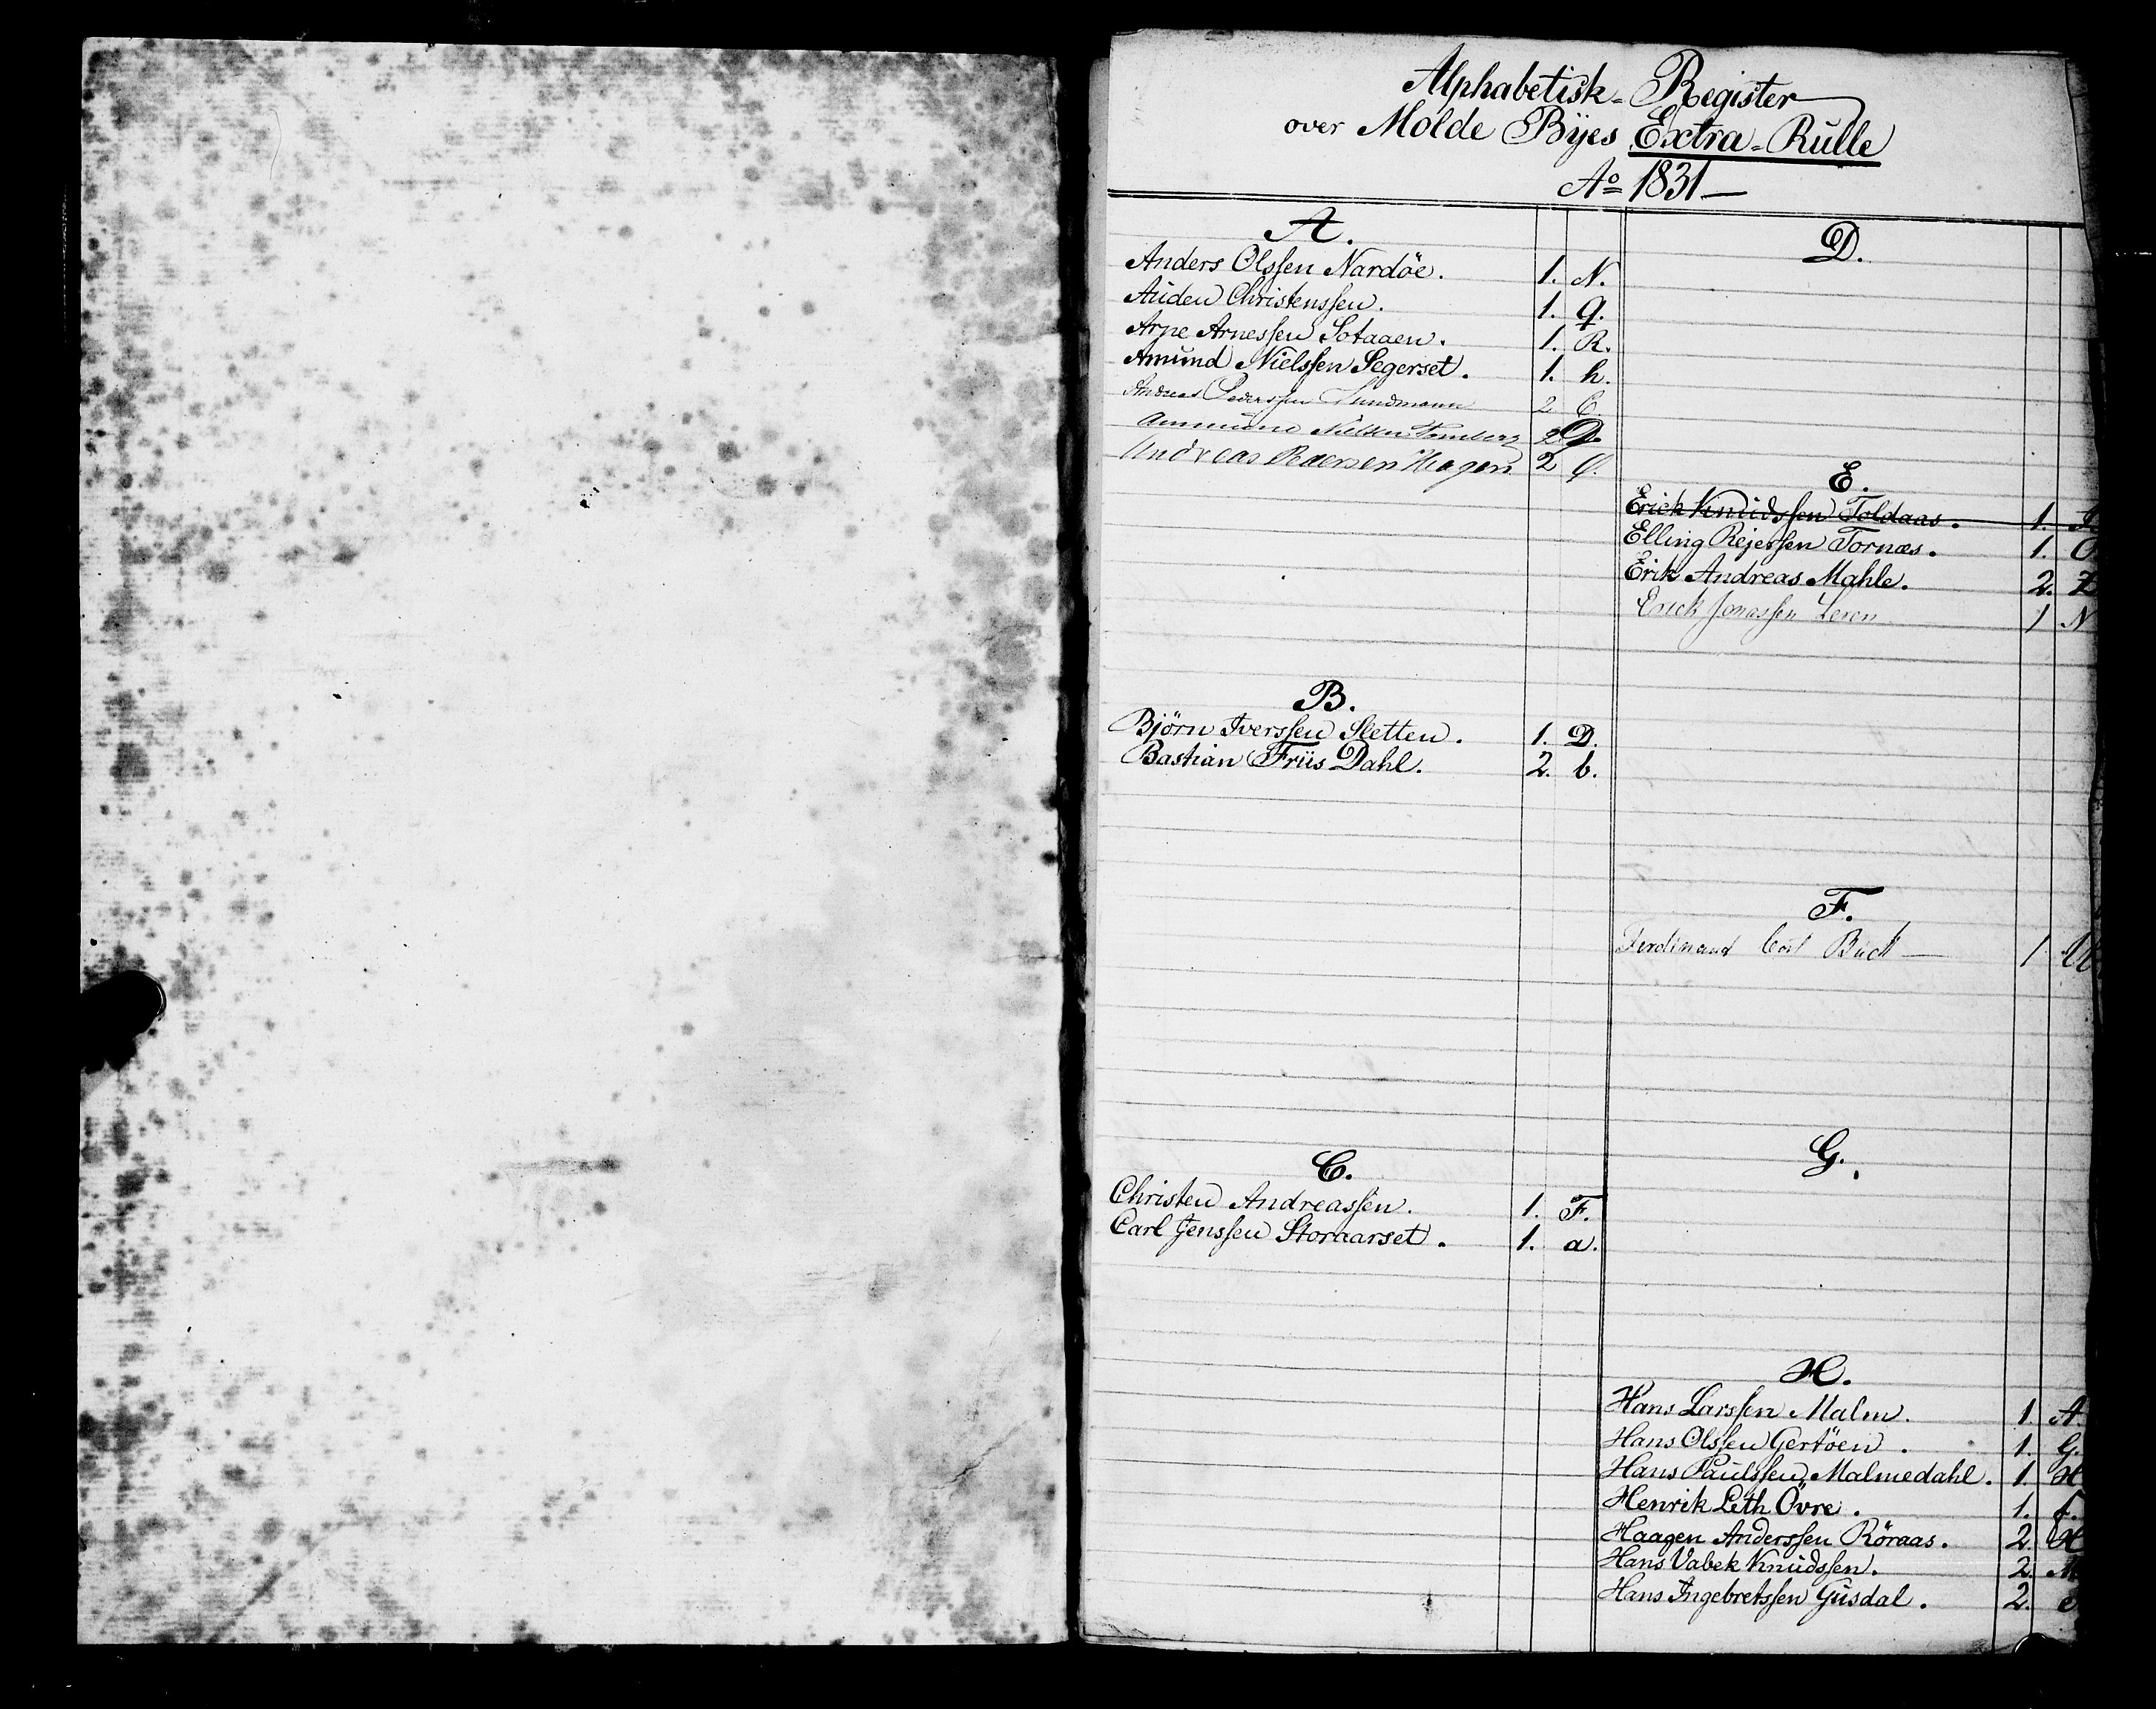 Alphabetisk-Register
over Molde Byes Extra-Rulle
Ao 1831 —
A.
Anders Olssen Nardöe. 1. N.
Auden Christenssen. 1. q.
Arne Arnessen Sotaaen. 1. R.
Amund Nielssen Segerset. 1. h.
Andreas Pederssen Sundmann 2 C.
Nielsen 2 D.
Andreas Hagen 2
B.
Björn Iverssen Sletten. 1. D.
Bastian Friis Dahl. 2. b.
C.
Christen Andreassen. 1. F.
Carl Jenssen Storaarset. 1. a.
D.
E.
Erich Knudssen Toldaas. 1.
Elling Rejerssen Tornæs. 1.
Erik Andreas Mahle. 2. Z
Erick Jonassen Leren 1 N
F.
Ferdinand Carl Buck — 1
G.
H.
Hans Larssen Malm. 1. A.
Hans Olssen Gertöen. 1. G.
Hans Paulssen Malmedahl. 1. H
Henrik Leth Övre. 1. f.
Haagen Anderssen Röraas. 2. H
Hans Vabek Knudssen. 2. M
Hans Ingebretssen Gusdal. 2. e